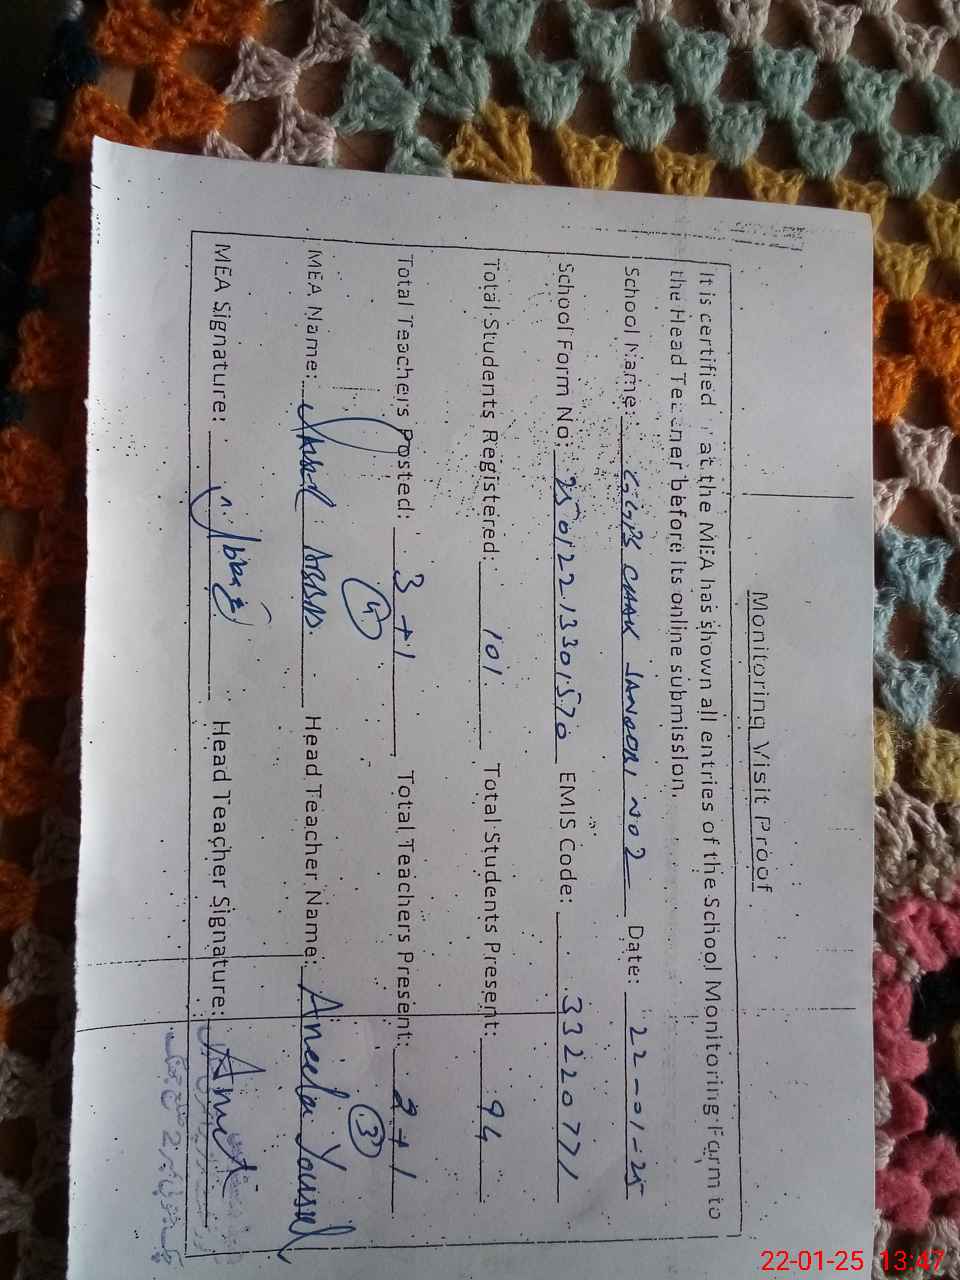 Monitoring Visit Proof
It is certified that the MEA has shown all entries of the School Monitoring Form to
the Head Teacher before its online submission.
School Name: GGPS CHAK JANOORI NO 2 Date: 22-01-25
School Form No: 25012213301570 EMIS Code: 33220771
Total Students Registered: 101 Total Students Present: 94
Total Teachers Posted: 3+1 Total Teachers Present: 2+1
4 3
MEA Name: ABBAS. Head Teacher Name: Aneela Yousaf
MEA Signature: Head Teacher Signature:
22-01-25 13:47